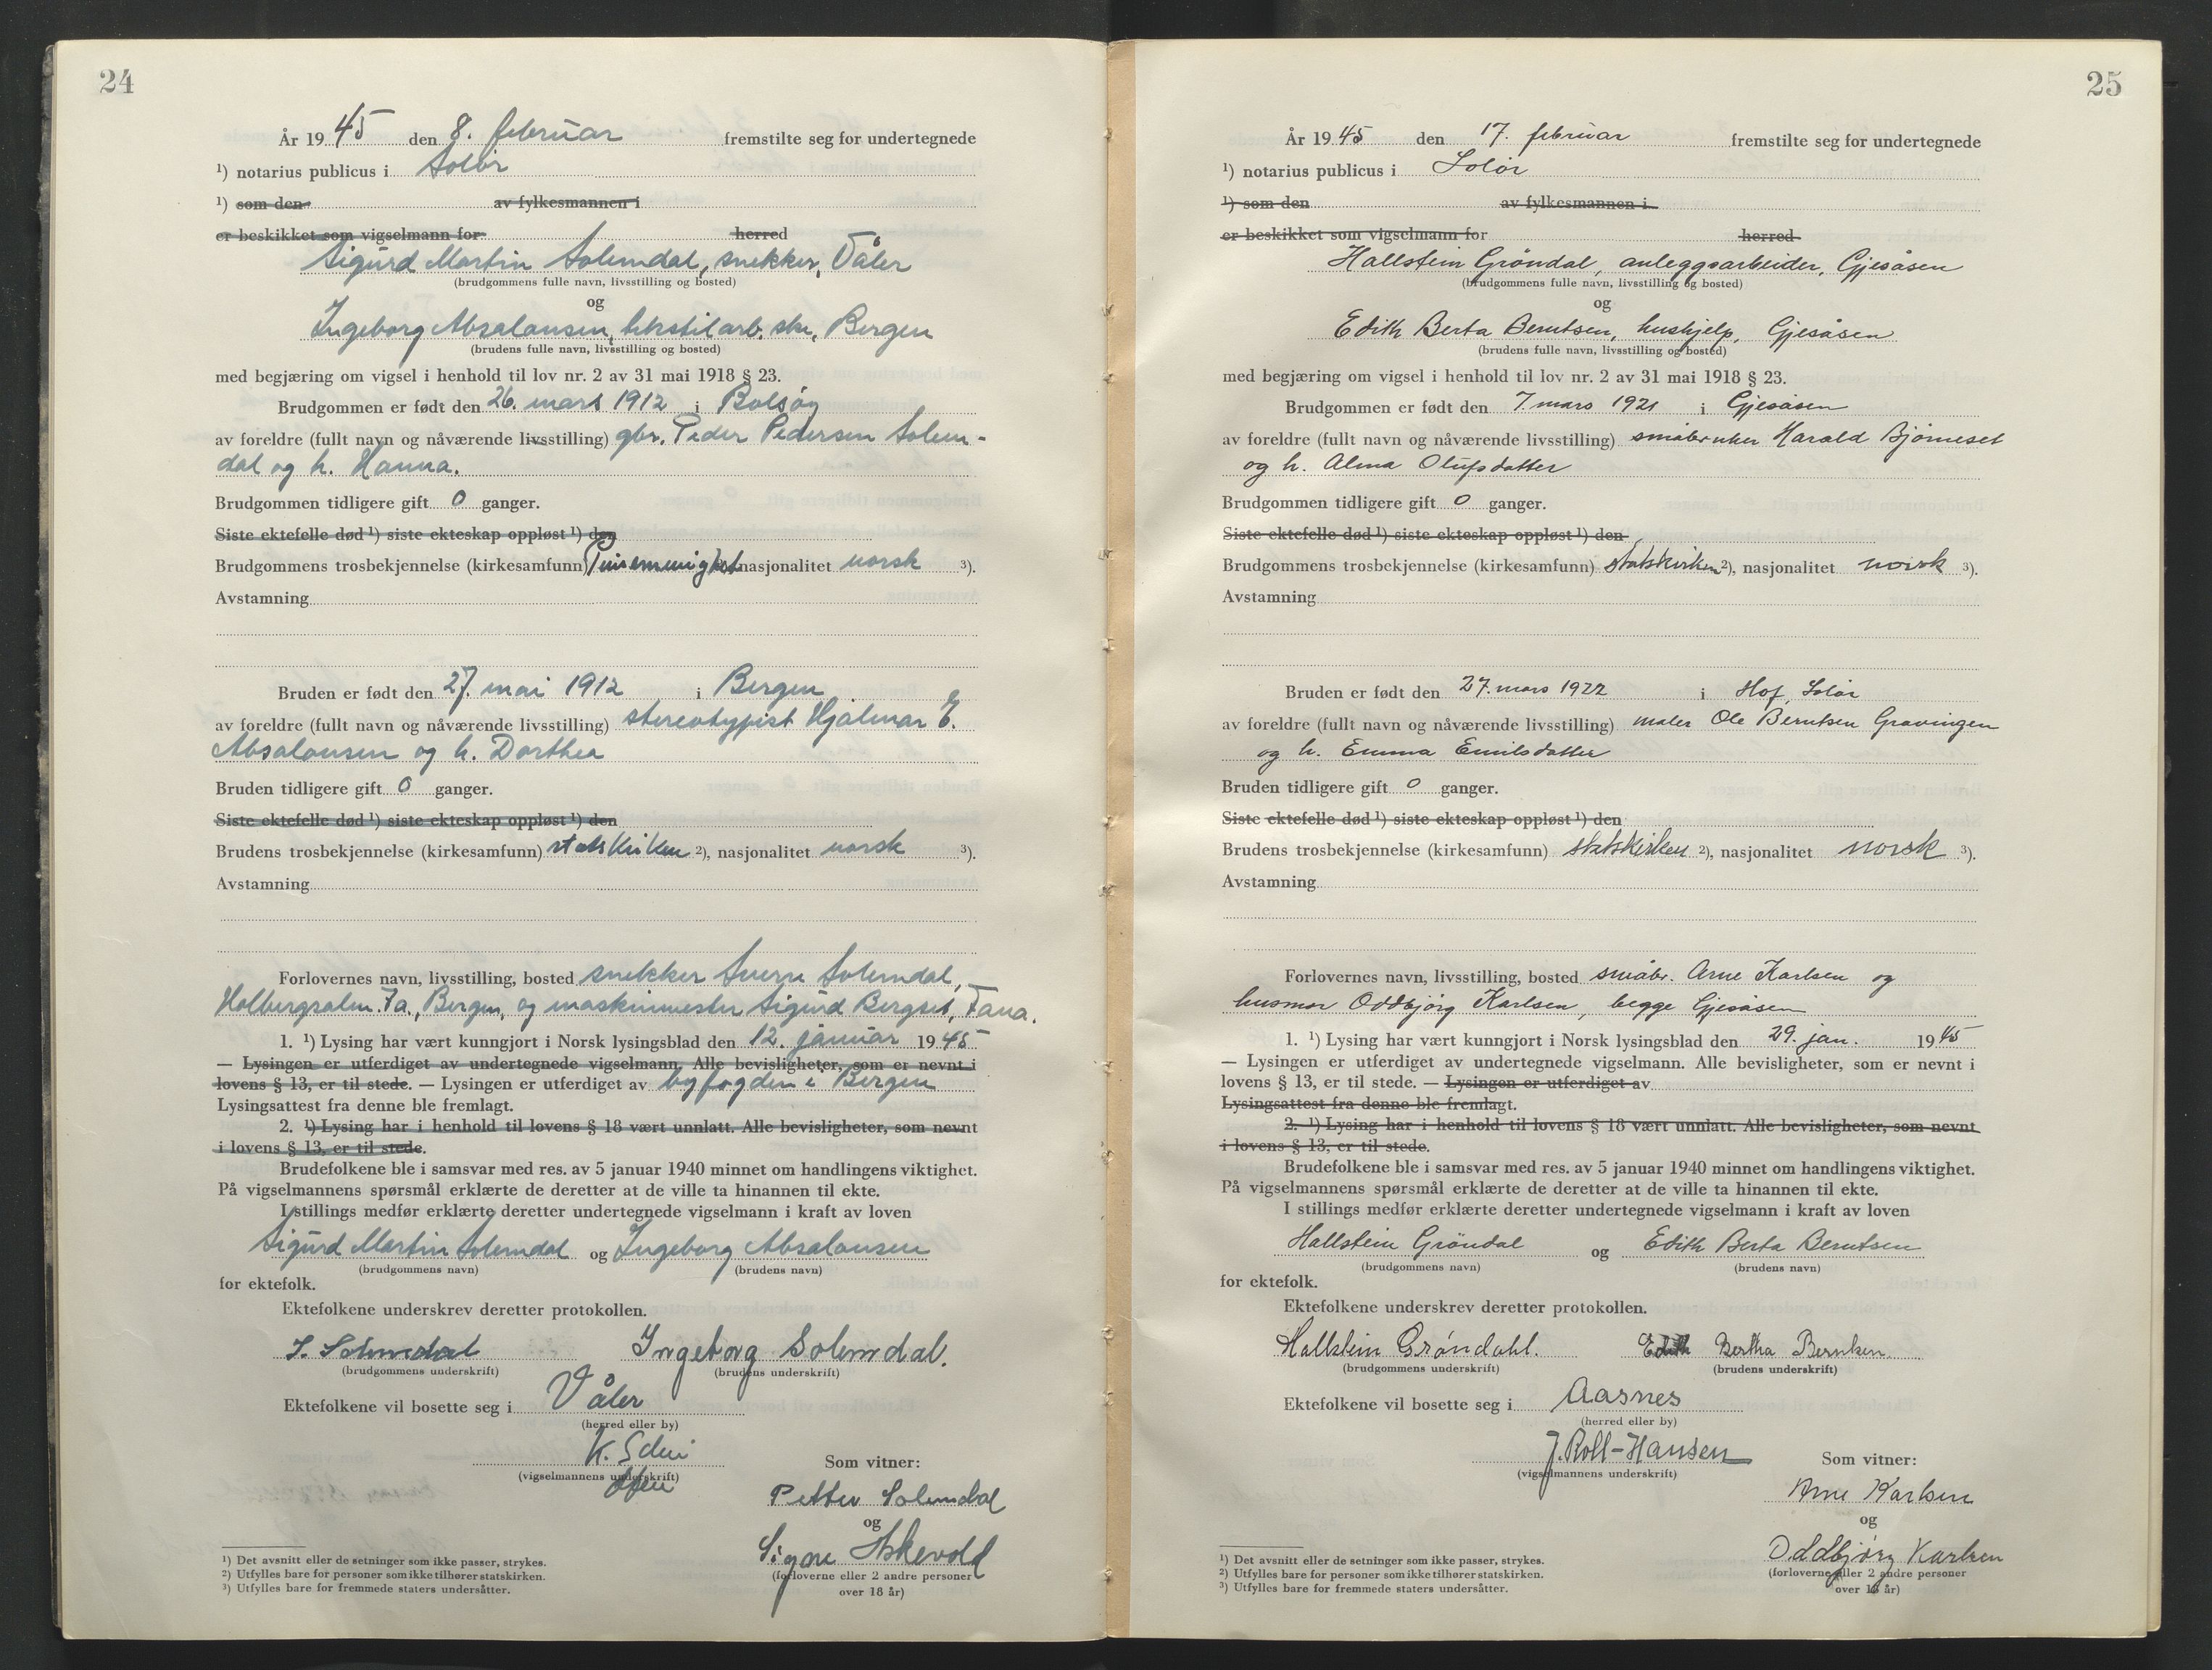 24
År 1945 den 8. februar fremstilte seg for undertegnede
¹) notarius publicus i Solør
¹) som den av fylkesmannen i
er beskikket som vigselmann for herred
Sigurd Martin Solemdal, snekker, Våler
(brudgommens fulle navn, livsstilling og bosted)
og
Ingeborg Absalonsen, tekstilarb.ske, Bergen
(brudens fulle navn, livsstilling og bosted)
med begjæring om vigsel i henhold til lov nr. 2 av 31 mai 1918 § 23.
Brudgommen er født den 26. mars 1912 i Bolsøy
av foreldre (fullt navn og nåværende livsstilling) gbr. Peder Pedersen Solem-
dal og h. Hanna.
Brudgommen tidligere gift 0 ganger.
Siste ektefelle død ¹) siste ekteskap oppløst ¹) den
Brudgommens trosbekjennelse (kirkesamfunn) Pinsemenighet nasjonalitet norsk ³).
Avstamning
Bruden er født den 27. mai 1912 i Bergen
av foreldre (fullt navn og nåværende livsstilling) stereotypist Hjalmar E.
Absalonsen og h. Dorthea
Bruden tidligere gift 0 ganger.
Siste ektefelle død ¹) siste ekteskap oppløst ¹) den
Brudens trosbekjennelse (kirkesamfunn) statskirken ²), nasjonalitet norsk ³).
Avstamning
Forlovernes navn, livsstilling, bosted snekker Sverre Solemdal,
Holbergsalm. 7a., Bergen, og maskinmester Sigurd Bergset, Fana.
1. ¹) Lysing har vært kunngjort i Norsk lysingsblad den 12. januar 1945
— Lysingen er utferdiget av undertegnede vigselmann. Alle bevisligheter, som er nevnt i
lovens § 13, er til stede. — Lysingen er utferdiget av byfogden i Bergen
Lysingsattest fra denne ble fremlagt.
2. ¹) Lysing har i henhold til lovens § 18 vært unnlatt. Alle bevisligheter, som nevnt
i lovens § 13, er til stede.
Brudefolkene ble i samsvar med res. av 5 januar 1940 minnet om handlingens viktighet.
På vigselmannens spørsmål erklærte de deretter at de ville ta hinannen til ekte.
I stillings medfør erklærte deretter undertegnede vigselmann i kraft av loven
Sigurd Martin Solemdal og Ingeborg Absalonsen
(brudgommens navn) (brudens navn)
for ektefolk.
Ektefolkene underskrev deretter protokollen.
S. Solemdal Ingeborg Solemdal.
(brudgommens underskrift) (brudens underskrift)
Ektefolkene vil bosette seg i Våler
(herred eller by)
K.
(vigselmannens underskrift)
Som vitner:
Petter Solemdal
og
Signe Askevold
(forloverne eller 2 andre personer
over 18 år)
¹) Det avsnitt eller de setninger som ikke passer, strykes.
²) Utfylles bare for personer som ikke tilhører statskirken.
³) Utfylles bare for fremmede staters undersåtter.
25
År 1945 den 17. februar fremstilte seg for undertegnede
¹) notarius publicus i Solør
¹) som den av fylkesmannen i
er beskikket som vigselmann for herred
Hallstein Gröndal, anleggsarbeider, Gjesåsen
(brudgommens fulle navn, livsstilling og bosted)
og
Edith Berta Berntsen, hushjelp, Gjesåsen
(brudens fulle navn, livsstilling og bosted)
med begjæring om vigsel i henhold til lov nr. 2 av 31 mai 1918 § 23.
Brudgommen er født den 7 mars 1921 i Gjesåsen
av foreldre (fullt navn og nåværende livsstilling) småbruker Harald Bjørneset
og h. Alma Olufsdatter
Brudgommen tidligere gift 0 ganger.
Siste ektefelle død ¹) siste ekteskap oppløst ¹) den
Brudgommens trosbekjennelse (kirkesamfunn) statskirken ²), nasjonalitet norsk ³).
Avstamning
Bruden er født den 27. mars 1922 i Hof, Solør
av foreldre (fullt navn og nåværende livsstilling) maler Ole Berntsen Gravingen
og h. Emma Emilsdatter
Bruden tidligere gift 0 ganger.
Siste ektefelle død ¹) siste ekteskap oppløst ¹) den
Brudens trosbekjennelse (kirkesamfunn) statskirken ²), nasjonalitet norsk ³).
Avstamning
Forlovernes navn, livsstilling, bosted småbr. Arne Karlsen og
husmor Oddbjørg Karlsen, begge Gjesåsen
1. ¹) Lysing har vært kunngjort i Norsk lysingsblad den 29. jan. 1945
— Lysingen er utferdiget av undertegnede vigselmann. Alle bevisligheter, som er nevnt i
lovens § 13, er til stede. — Lysingen er utferdiget av
Lysingsattest fra denne ble fremlagt.
2. ¹) Lysing har i henhold til lovens § 18 vært unnlatt. Alle bevisligheter, som nevnt
i lovens § 13, er til stede.
Brudefolkene ble i samsvar med res. av 5 januar 1940 minnet om handlingens viktighet.
På vigselmannens spørsmål erklærte de deretter at de ville ta hinannen til ekte.
I stillings medfør erklærte deretter undertegnede vigselmann i kraft av loven
Hallstein Gröndal og Edith Berta Berntsen
(brudgommens navn) (brudens navn)
for ektefolk.
Ektefolkene underskrev deretter protokollen.
Hallstein Grøndahl. Edith Bertha Berntsen.
(brudgommens underskrift) (brudens underskrift)
Ektefolkene vil bosette seg i Aasnes
(herred eller by)
J. Roll-Hansen
(vigselmannens underskrift)
Som vitner:
Arne Karlsen
og
Oddbjørg Karlsen
(forloverne eller 2 andre personer
over 18 år)
¹) Det avsnitt eller de setninger som ikke passer, strykes.
²) Utfylles bare for personer som ikke tilhører statskirken.
³) Utfylles bare for fremmede staters undersåtter.